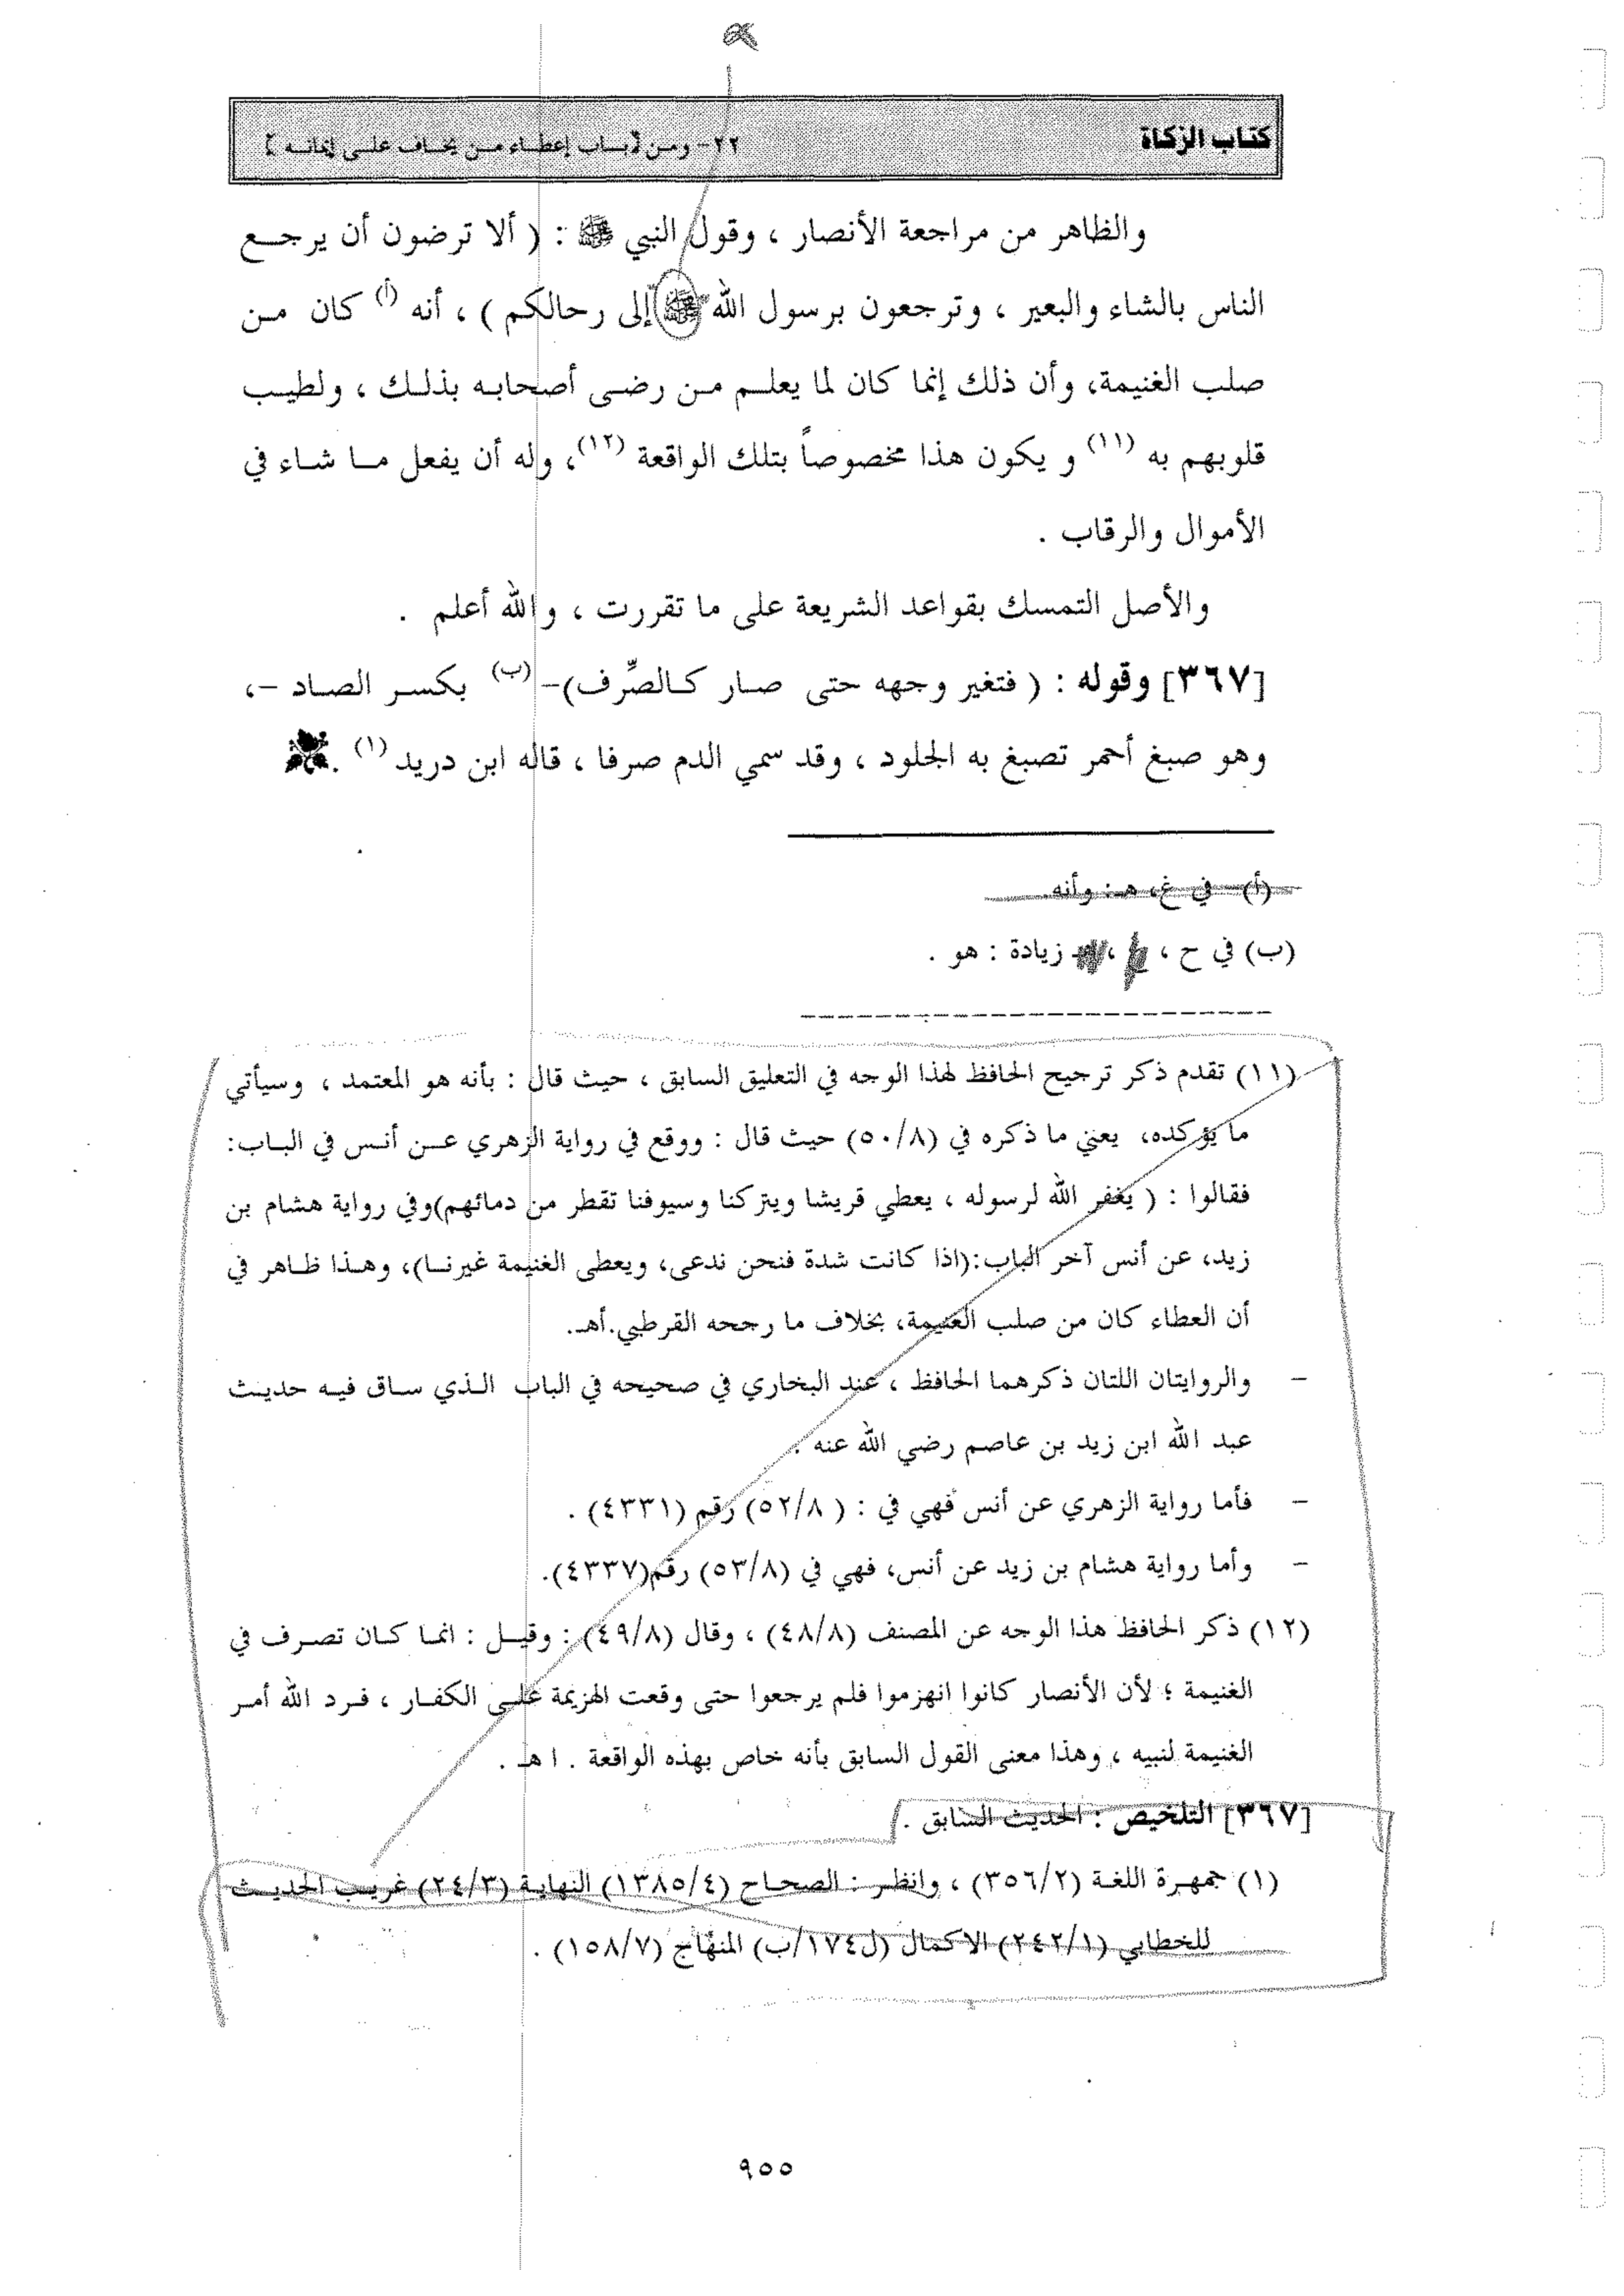 كتاب الزكاة
٢٢- ومن [باب إعطاء من يخاف على إيمانه]
والظاهر من مراجعة الأنصار ، وقول النبي ﷺ : ( ألا ترضون أن يرجع
الناس بالشاء والبعير ، وترجعون برسول الله ﷺ إلى رحالكم ) ، أنه (أ) كان من
صلب الغنيمة، وأن ذلك إنما كان لما يعلم من رضى أصحابه بذلك ، ولطيب
قلوبهم به (١١) و يكون هذا مخصوصاً بتلك الواقعة (١٢)، وله أن يفعل ما شاء في
الأموال والرقاب .
والأصل التمسك بقواعد الشريعة على ما تقررت ، والله أعلم .
[٣٦٧] وقوله : ( فتغير وجهه حتى صار كالصِّرف)- (ب) بكسر الصاد -،
وهو صبغ أحمر تصبغ به الجلود ، وقد سمي الدم صرفا ، قاله ابن دريد (١) .
(أ) في غ، هـ: وأنه.
(ب) في ح ، زيادة : هو .
(١١) تقدم ذكر ترجيح الحافظ لهذا الوجه في التعليق السابق ، حيث قال : بأنه هو المعتمد ، وسيأتي
ما يؤكده، يعني ما ذكره في (٥٠/٨) حيث قال : ووقع في رواية الزهري عن أنس في الباب:
فقالوا : ( يغفر الله لرسوله ، يعطي قريشا ويتركنا وسيوفنا تقطر من دمائهم)وفي رواية هشام بن
زيد، عن أنس آخر الباب:(اذا كانت شدة فنحن ندعى، ويعطى الغنيمة غيرنا)، وهذا ظاهر في
أن العطاء كان من صلب الغنيمة، بخلاف ما رجحه القرطبي.أهـ.
- والروايتان اللتان ذكرهما الحافظ ، عند البخاري في صحيحه في الباب الذي ساق فيه حديث
عبد الله ابن زيد بن عاصم رضي الله عنه .
- فأما رواية الزهري عن أنس فهي في : ( ٥٢/٨) رقم (٤٣٣١) .
- وأما رواية هشام بن زيد عن أنس، فهي في (٥٣/٨) رقم(٤٣٣٧).
(١٢) ذكر الحافظ هذا الوجه عن المصنف (٤٨/٨) ، وقال (٤٩/٨) : وقيل : انما كان تصرف في
الغنيمة ؛ لأن الأنصار كانوا انهزموا فلم يرجعوا حتى وقعت الهزيمة على الكفار ، فرد الله أمر
الغنيمة لنبيه ، وهذا معنى القول السابق بأنه خاص بهذه الواقعة . ا هـ .
[٣٦٧] التلخيص : الحديث السابق .
(١) جمهرة اللغة (٣٥٦/٢) ، وانظر : الصحاح (١٣٨٥/٤) النهاية (٢٤/٣) غريب الحديث
للخطابي (٢٤٢/١) الاكمال (ل١٧٤/ب) المنهاج (١٥٨/٧) .
٩٥٥